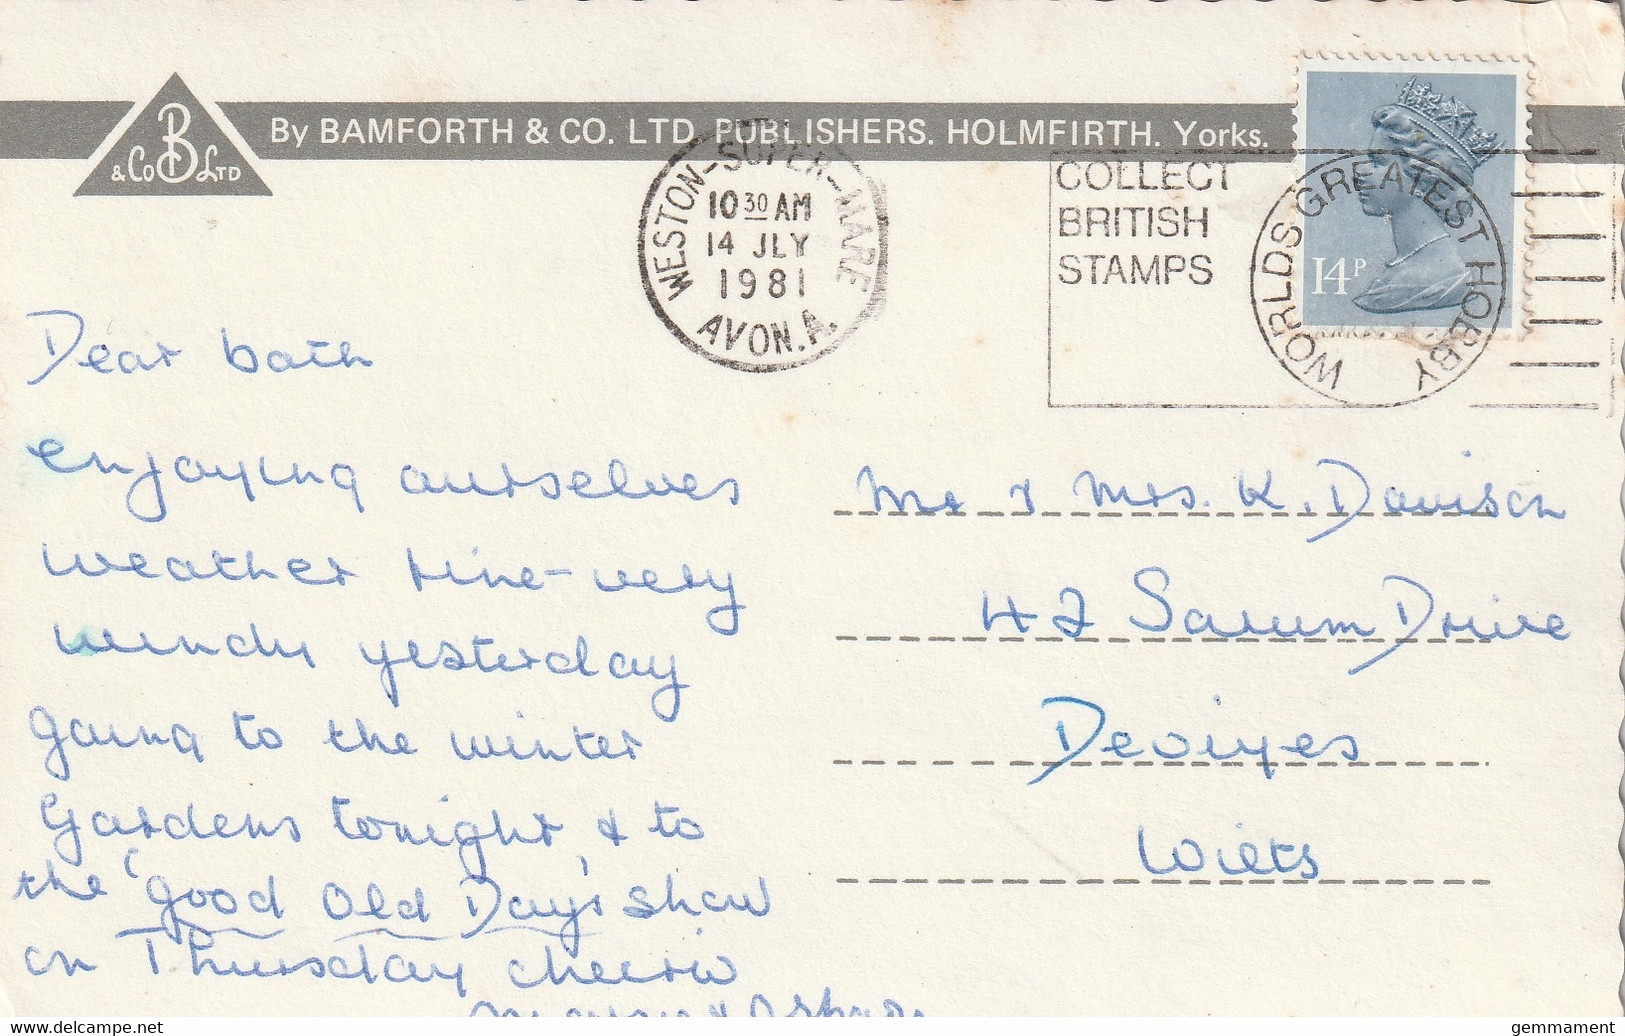 B
& Co Ltd
By BAMFORTH & CO. LTD. PUBLISHERS. HOLMFIRTH. Yorks.
WESTON-SUPER-MARE
10 30 AM
14 JLY
1981
AVON.A.
COLLECT
BRITISH
STAMPS
WORLDS GREATEST HOBBY
14P
Dear both
enjoying ourselves
weather fine-very
windy yesterday
going to the winter
Gardens tonight, & to
the 'Good Old Days' show
on Thursday cheerio
Mr & Mrs. K. Davison
42 Sarum Drive
Devizes
Wilts
delcampe.net
gemmament